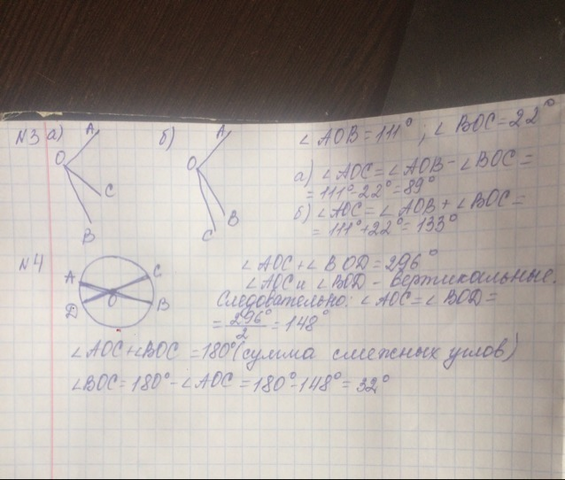 N3 а)
A
O
C
B
б)
A
O
B
C
∠AOB=111°, ∠BOC=22°
а) ∠AOC=∠AOB-∠BOC=
=111°-22°=89°
б) ∠AOC=∠AOB+∠BOC=
=111°+22°=133°
N4
A
C
O
D
B
∠AOC+∠BOD=296°
∠AOC и ∠BOD - вертикальные.
Следовательно: ∠AOC=∠BOD=
=296°/2=148°
∠AOC+∠BOC=180°(сумма смежных углов)
∠BOC=180°-∠AOC=180°-148°=32°